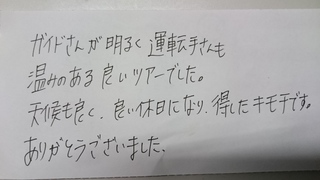 ガイドさんが明るく運転手さんも
温みのある良いツアーでした。
天候も良く、良い休日になり、得したキモチです。
ありがとうございました、